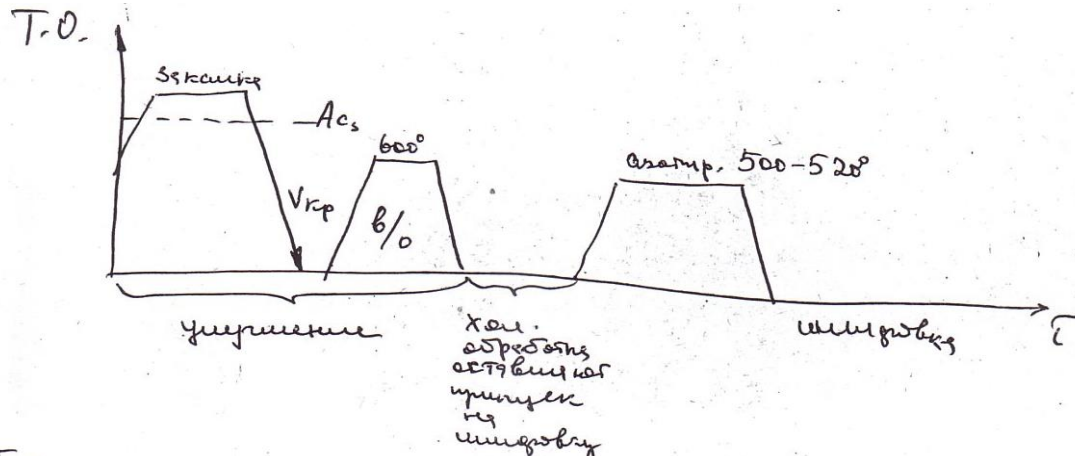 Т.О.
Закалка
Ac₃
600°
Vкр
в/о
азотир. 500-520°
улучшение
хол.
обработка
оставляют
припуск
на
шлифовку
шлифовка
τ